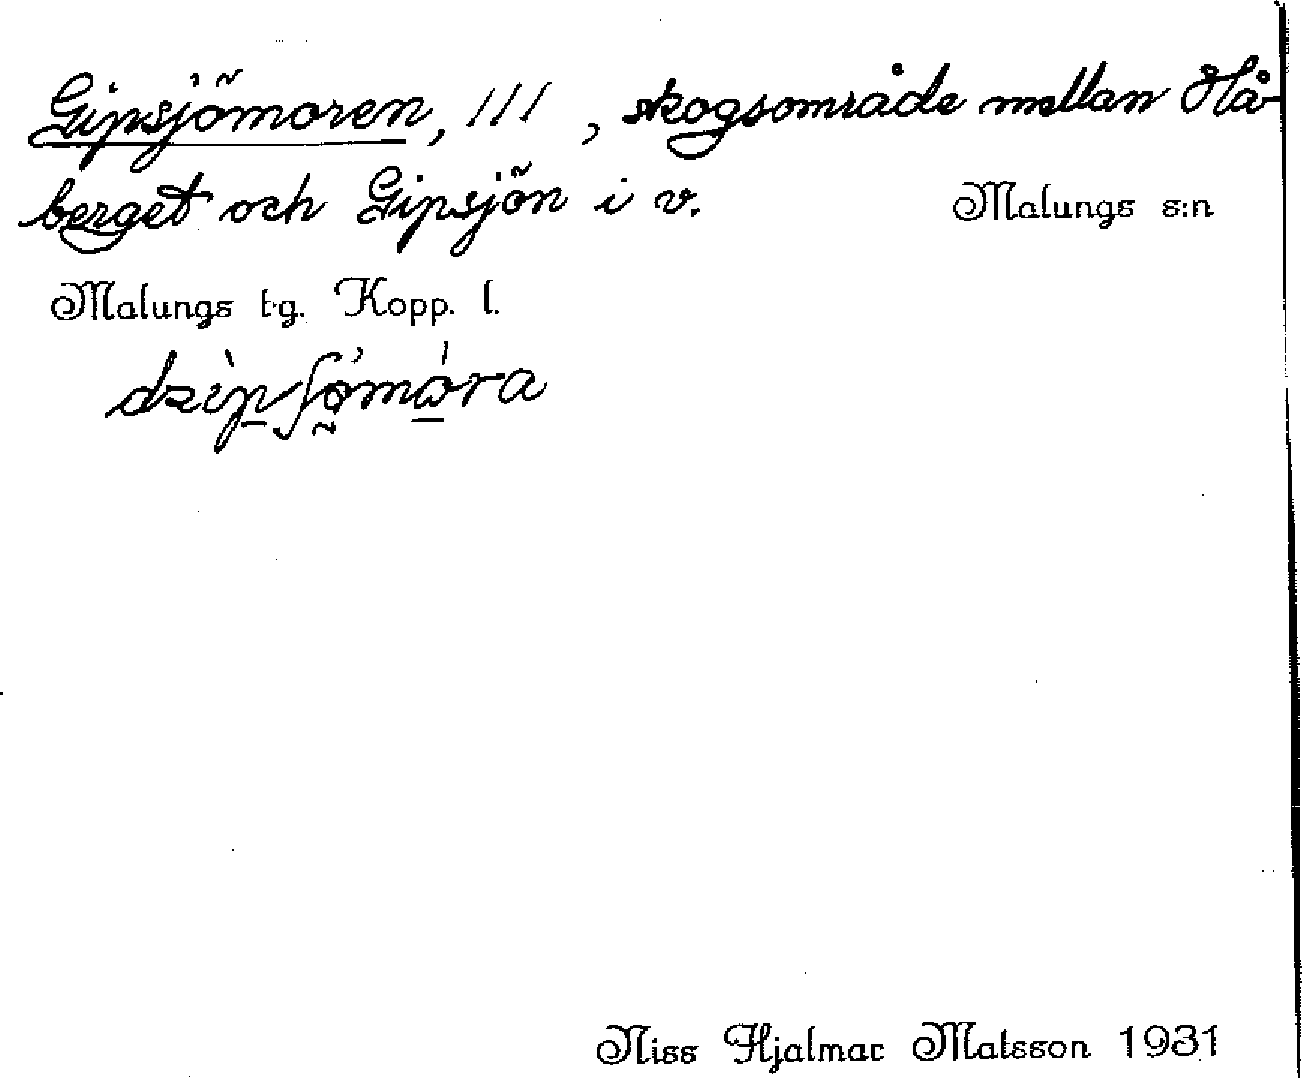 Gipsjömoren, III, skogsområde mellan Hå-
berget och Gipsjön i v. Malungs s:n
Malungs tg. Kopp. l.
dzìpʃö́mɷ́ra
Niss Hjalmar Matsson 1931